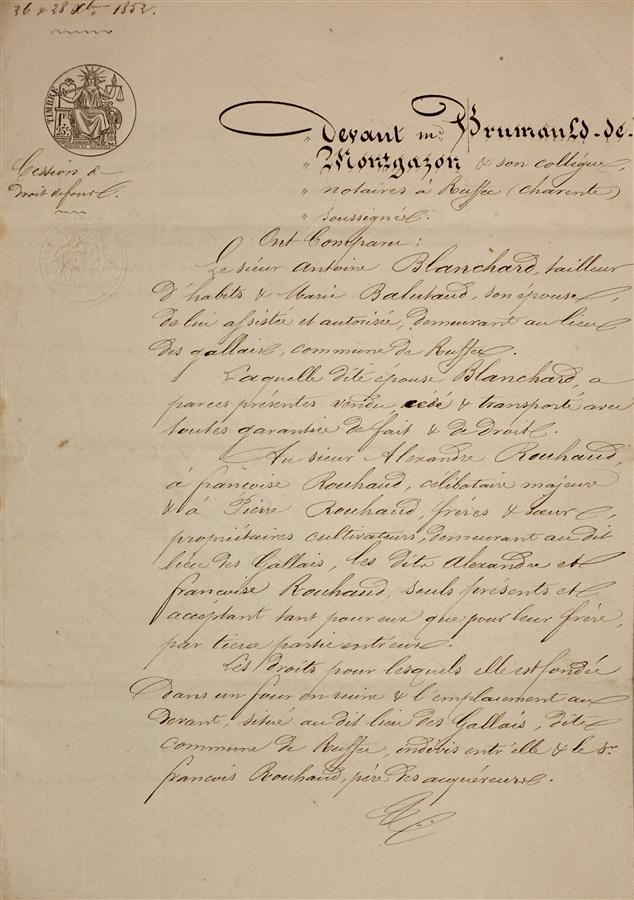 26 & 28 Xbre 1852.
TIMBRE
1F.
25c
Cession de
Droit de four.
Devant me Brumauld-de-
" Montgazon & son collègue,
" notaires à Ruffec (Charente)
" soussignés.
Ont Comparu :
Le sieur Antoine Blanchard, tailleur
d'habits & Marie Balutaud, son épouse,
de lui assistée et autorisée, demeurant au lieu
des gallais, commune de Ruffec.
Laquelle dite épouse Blanchard, a
par ces présentes vendu, cédé & transporté avec
toutes garanties de fait & de Droit.
Au sieur Alexandre Rouhaud,
à françoise Rouhaud, célibataire majeure
& à Pierre Rouhaud, frères & sœur,
propriétaires cultivateurs, demeurant au dit
lieu des Gallais, les dits Alexandre et
françoise Rouhaud, seuls présents et
acceptant tant pour eux que pour leur frère,
par tierce partie entr'eux.
Les droits pour lesquels elle est fondée
Dans un four en ruine & l'emplacement au
devant, situé au dit lieu des Gallais, dite
commune de Ruffec, indivis entr'elle & le sr.
françois Rouhaud, père des acquéreurs.